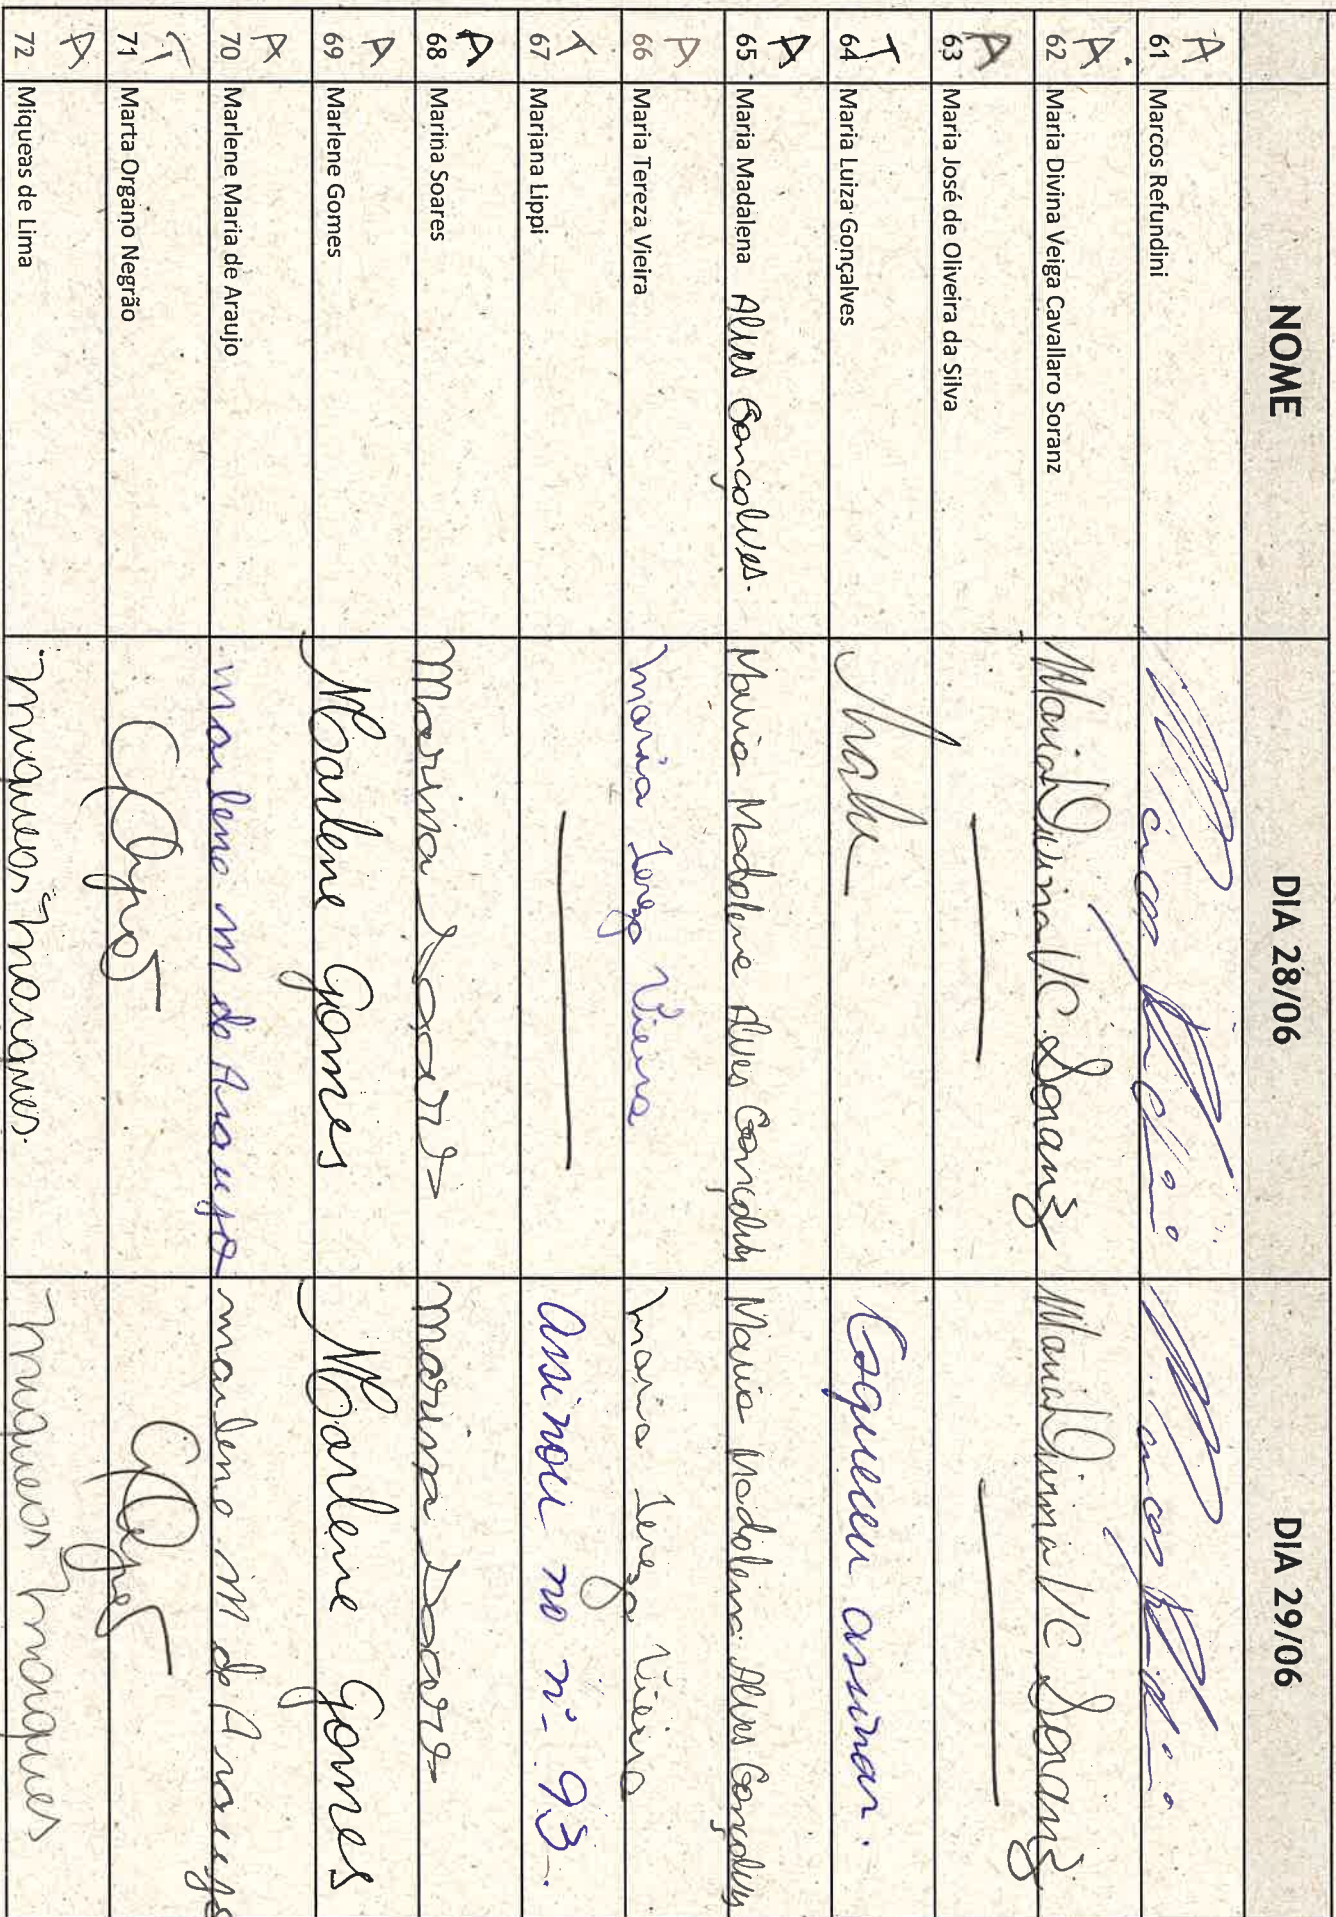 NOME DIA 28/06 DIA 29/06
A 61 Marcos Refundini
A 62 Maria Divina Veiga Cavallaro Soranz Maria Divina V C Soranz Maria Divina V C Soranz
A 63 Maria José de Oliveira da Silva
T 64 Maria Luiza Gonçalves Malu Esqueceu assinar.
A 65 Maria Madalena Alves Gonçalves. Maria Madalena Alves Gonçalves Maria Madalena Alves Gonçalves
A 66 Maria Tereza Vieira Maria Tereza Vieira Maria Tereza Vieira
T 67 Mariana Lippi Assinou no nº 93.
A 68 Marina Soares Marina Soares Marina Soares
A 69 Marlene Gomes Marlene Gomes Marlene Gomes
A 70 Marlene Maria de Araujo marlene m de Araujo marlene m de Araujo
T 71 Marta Organo Negrão
A 72 Miqueas de Lima Miqueas Marques. Miqueas Marques